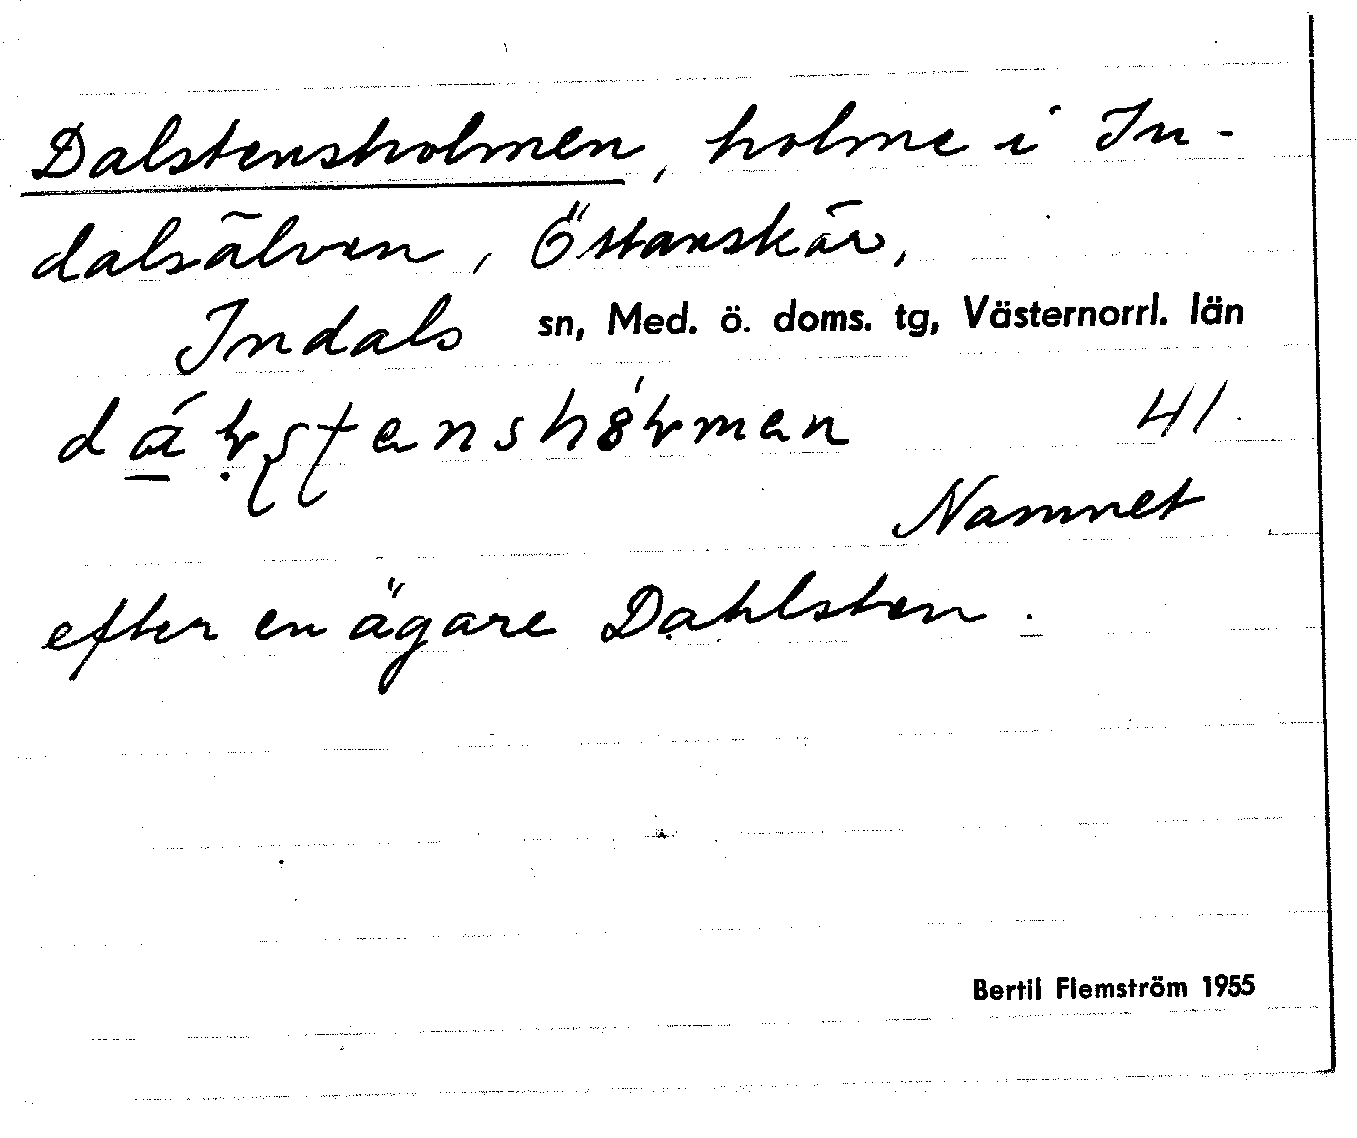 Dalstensholmen, holme i In-
dalsälven, Östanskär,
Indals sn, Med. ö. doms. tg, Västernorrl. län
41.
Namnet
efter en ägare Dahlsten.
Bertil Flemström 1955